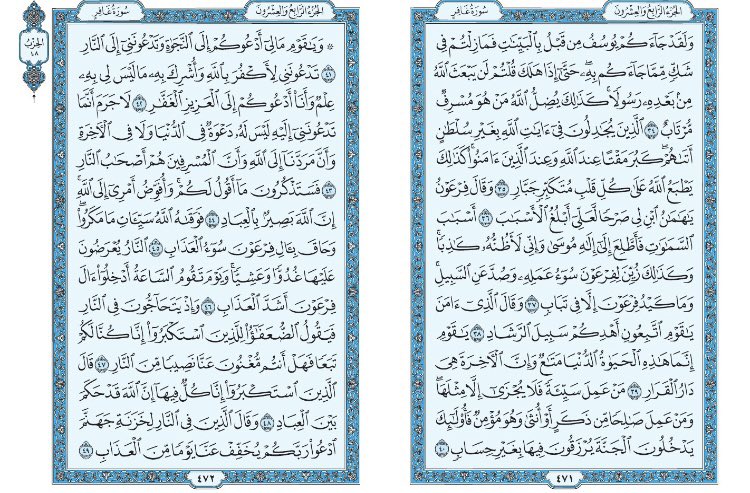 الجُزْءُ الرَّابِعُ وَالْعِشْرُونَ
سُورَةُ غَافِرٍ
وَلَقَدْ جَاءَكُمْ يُوسُفُ مِن قَبْلُ بِالْبَيِّنَاتِ فَمَا زِلْتُمْ فِي
شَكٍّ مِّمَّا جَاءَكُم بِهِ حَتَّىٰ إِذَا هَلَكَ قُلْتُمْ لَن يَبْعَثَ اللَّهُ
مِن بَعْدِهِ رَسُولًا كَذَٰلِكَ يُضِلُّ اللَّهُ مَنْ هُوَ مُسْرِفٌ
مُّرْتَابٌ ٣٤ الَّذِينَ يُجَادِلُونَ فِي آيَاتِ اللَّهِ بِغَيْرِ سُلْطَانٍ
أَتَاهُمْ كَبُرَ مَقْتًا عِندَ اللَّهِ وَعِندَ الَّذِينَ آمَنُوا كَذَٰلِكَ
يَطْبَعُ اللَّهُ عَلَىٰ كُلِّ قَلْبِ مُتَكَبِّرٍ جَبَّارٍ ٣٥ وَقَالَ فِرْعَوْنُ
يَا هَامَانُ ابْنِ لِي صَرْحًا لَّعَلِّي أَبْلُغُ الْأَسْبَابَ ٣٦ أَسْبَابَ
السَّمَاوَاتِ فَأَطَّلِعَ إِلَىٰ إِلَٰهِ مُوسَىٰ وَإِنِّي لَأَظُنُّهُ كَاذِبًا
وَكَذَٰلِكَ زُيِّنَ لِفِرْعَوْنَ سُوءُ عَمَلِهِ وَصُدَّ عَنِ السَّبِيلِ
وَمَا كَيْدُ فِرْعَوْنَ إِلَّا فِي تَبَابٍ ٣٧ وَقَالَ الَّذِي آمَنَ
يَا قَوْمِ اتَّبِعُونِ أَهْدِكُمْ سَبِيلَ الرَّشَادِ ٣٨ يَا قَوْمِ
إِنَّمَا هَٰذِهِ الْحَيَاةُ الدُّنْيَا مَتَاعٌ وَإِنَّ الْآخِرَةَ هِيَ
دَارُ الْقَرَارِ ٣٩ مَنْ عَمِلَ سَيِّئَةً فَلَا يُجْزَىٰ إِلَّا مِثْلَهَا
وَمَنْ عَمِلَ صَالِحًا مِّن ذَكَرٍ أَوْ أُنثَىٰ وَهُوَ مُؤْمِنٌ فَأُولَٰئِكَ
يَدْخُلُونَ الْجَنَّةَ يُرْزَقُونَ فِيهَا بِغَيْرِ حِسَابٍ ٤٠
٤٧١
الجُزْءُ الرَّابِعُ وَالْعِشْرُونَ
سُورَةُ غَافِرٍ
الحِزْبُ
٤٨
۞ وَيَا قَوْمِ مَا لِي أَدْعُوكُمْ إِلَى النَّجَاةِ وَتَدْعُونَنِي إِلَى النَّارِ
٤١ تَدْعُونَنِي لِأَكْفُرَ بِاللَّهِ وَأُشْرِكَ بِهِ مَا لَيْسَ لِي بِهِ
عِلْمٌ وَأَنَا أَدْعُوكُمْ إِلَى الْعَزِيزِ الْغَفَّارِ ٤٢ لَا جَرَمَ أَنَّمَا
تَدْعُونَنِي إِلَيْهِ لَيْسَ لَهُ دَعْوَةٌ فِي الدُّنْيَا وَلَا فِي الْآخِرَةِ
وَأَنَّ مَرَدَّنَا إِلَى اللَّهِ وَأَنَّ الْمُسْرِفِينَ هُمْ أَصْحَابُ النَّارِ
٤٣ فَسَتَذْكُرُونَ مَا أَقُولُ لَكُمْ وَأُفَوِّضُ أَمْرِي إِلَى اللَّهِ
إِنَّ اللَّهَ بَصِيرٌ بِالْعِبَادِ ٤٤ فَوَقَاهُ اللَّهُ سَيِّئَاتِ مَا مَكَرُوا
وَحَاقَ بِآلِ فِرْعَوْنَ سُوءُ الْعَذَابِ ٤٥ النَّارُ يُعْرَضُونَ
عَلَيْهَا غُدُوًّا وَعَشِيًّا وَيَوْمَ تَقُومُ السَّاعَةُ أَدْخِلُوا آلَ
فِرْعَوْنَ أَشَدَّ الْعَذَابِ ٤٦ وَإِذْ يَتَحَاجُّونَ فِي النَّارِ
فَيَقُولُ الضُّعَفَاءُ لِلَّذِينَ اسْتَكْبَرُوا إِنَّا كُنَّا لَكُمْ
تَبَعًا فَهَلْ أَنتُم مُّغْنُونَ عَنَّا نَصِيبًا مِّنَ النَّارِ ٤٧ قَالَ
الَّذِينَ اسْتَكْبَرُوا إِنَّا كُلٌّ فِيهَا إِنَّ اللَّهَ قَدْ حَكَمَ
بَيْنَ الْعِبَادِ ٤٨ وَقَالَ الَّذِينَ فِي النَّارِ لِخَزَنَةِ جَهَنَّمَ
ادْعُوا رَبَّكُمْ يُخَفِّفْ عَنَّا يَوْمًا مِّنَ الْعَذَابِ ٤٩
٤٧٢